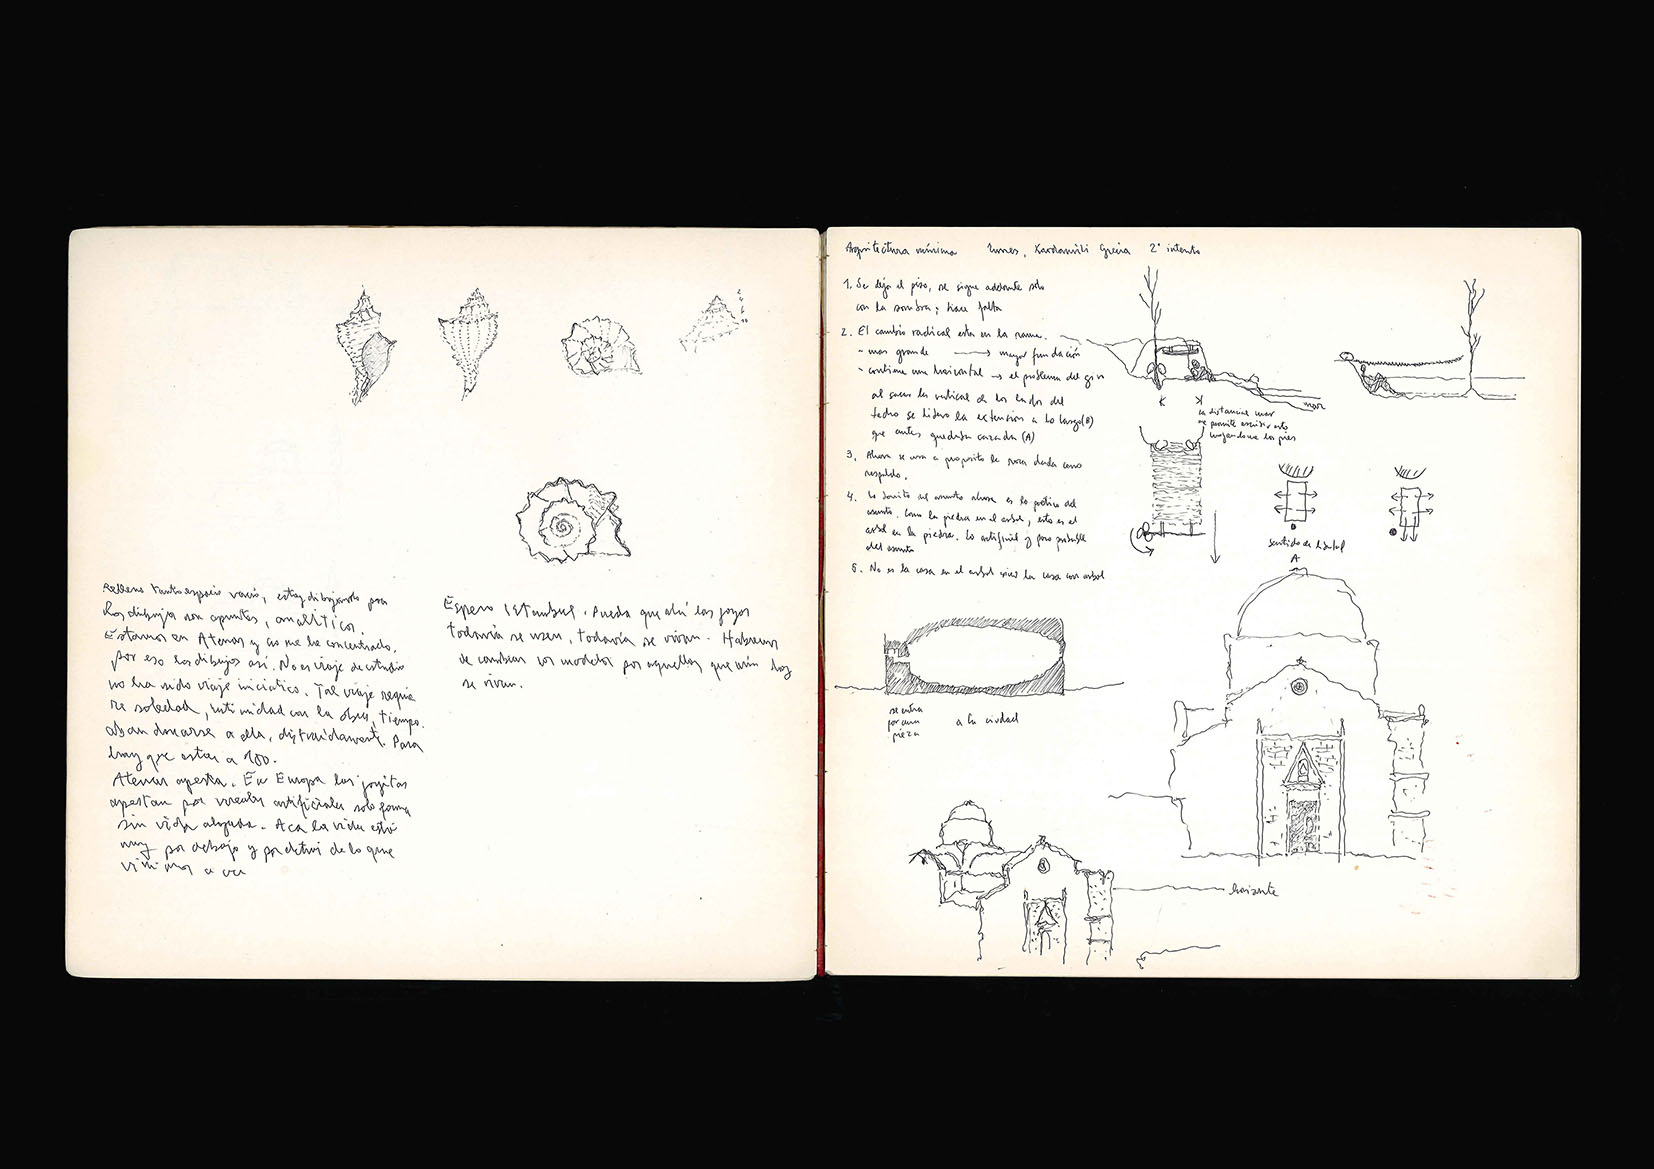 Relleno tanto espacio vacío, estoy dibujando poco
Los dibujos son apuntes, analíticos.
Estamos en Atenas y no me he concentrado,
por eso los dibujos así. No es viaje de estudio
no ha sido viaje iniciático. Tal viaje requie
re soledad, intimidad con la obra, tiempo.
abandonarse a ella, distraidamente. Para
hay que estar a 100.
Atenas apesta. En Europa las joyitas
apestan por vocales artificiales solo forma
sin vida alguna. Acá la vida está
muy por debajo y por detrás de lo que
vinimos a ver
Espero Istambul. Pueda que ahí las joyas
todavía se usen, todavía se vivan. Habremos
de cambiar los modelos por aquellos que aún hoy
se vivan.
Arquitectura mínima lunes, Kardamili Grecia 2° intento
1. Se deja el piso, se sigue adelante solo
con la sombra; hace falta
2. El cambio radical esta en la rama.
- mas grande → mayor fundación
- contiene una horizontal → el problema del giro
al sacar la vertical de los lados del
techo se libera la extensión a lo largo (B)
que antes quedaba cazada (A)
3. Ahora se usa a proposito la roca dada como
respaldo.
4. Lo bonito del asunto ahora es lo poético del
asunto. Como la piedra en el arbol, esto es el
arbol en la piedra. Lo artificial y poco probable
del asunto
5. No es la casa en el arbol sino la casa con arbol
mar
la distancia al mar
me permite escribir esto
mojandome los pies
sentido de
A
B
se entra
por aun
pieza
a la ciudad
horizonte